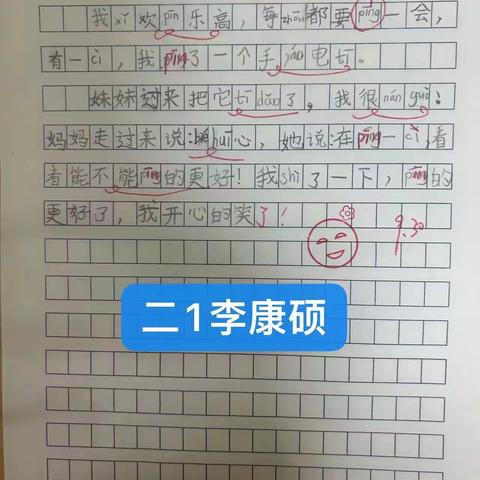 我xǐ欢pīn乐高，每zhōu都要pīng一会，
有一cì，我pīng了一个手yáo电tī。
妹妹过来把它tī dǎo了，我很nán guò！
妈妈走过来说：bié huī心，她说：在pīng一cì，看
看能不能pīng的更好！我shì了一下，pīng的
更好了，我开心的笑了！
9.30
二1李康硕